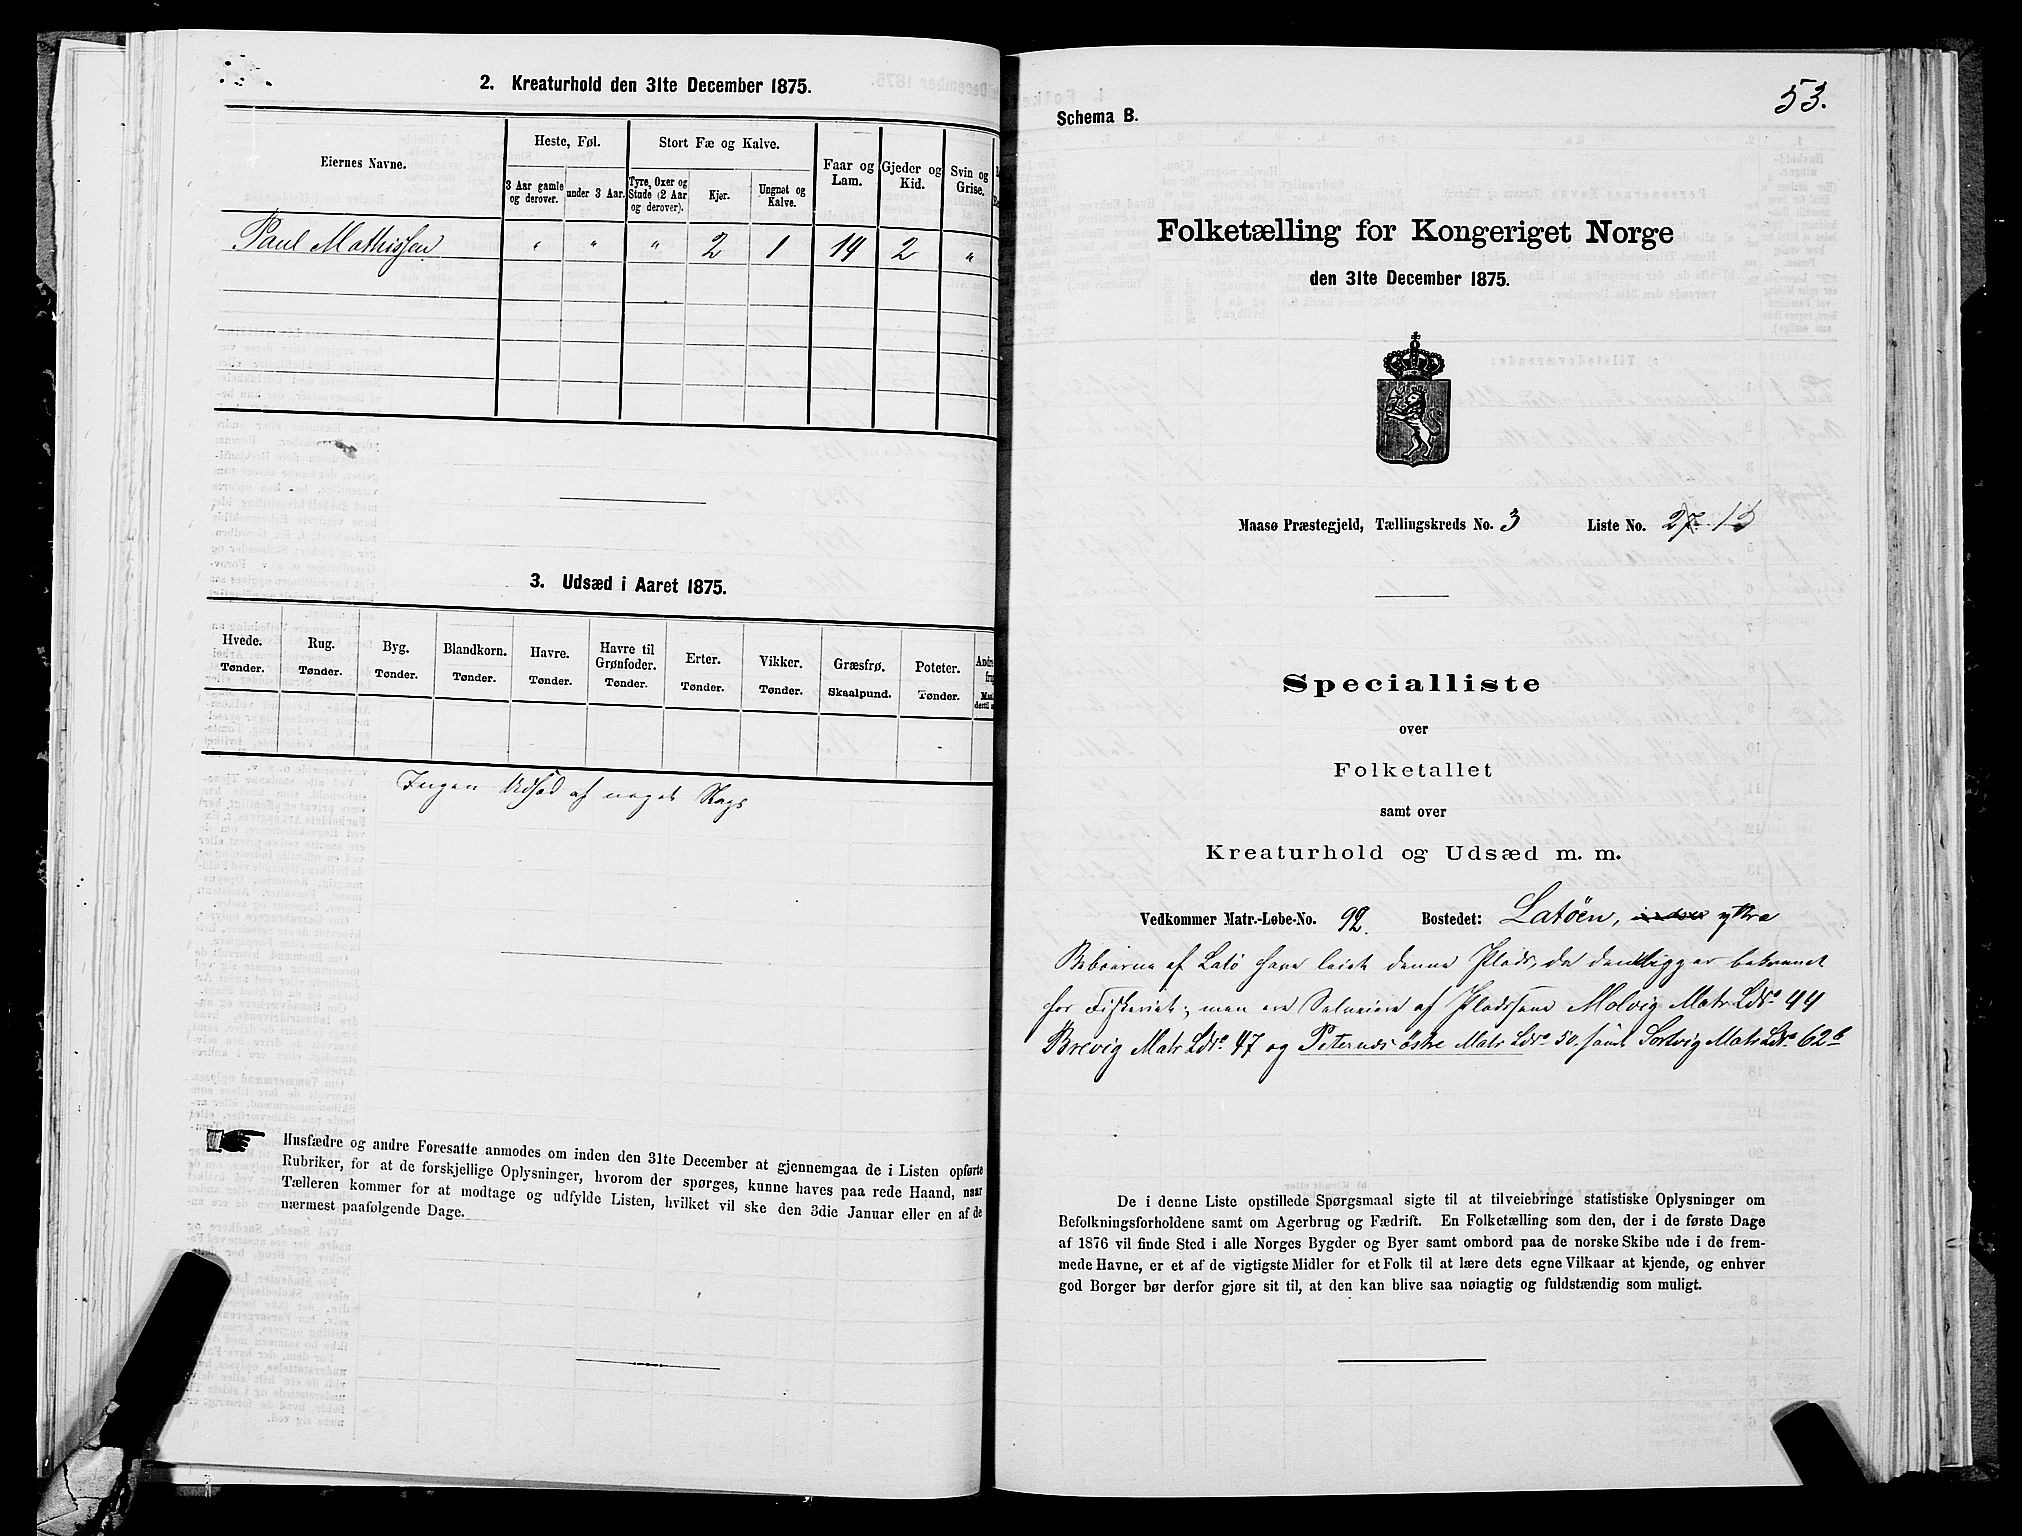 2. Kreaturhold den 31te December 1875.
Eiernes Navne.
Heste, Føl.
Stort Fæ og Kalve.
Faar og Lam.
Gjeder og Kid.
Svin og Grise.
3 Aar gamle og derover.
under 3 Aar.
Tyre, Oxer og Stude (2 Aar og derover).
Kjer.
Ungnøt og Kalve.
Paul Mathissen " " " 2 1 14 2 "
3. Udsæd i Aaret 1875.
Hvede. Rug. Byg. Blandkorn. Havre. Havre til Grønfoder. Erter. Vikker. Græsfrø. Poteter.
Tønder. Tønder. Tønder. Tønder. Tønder. Tønder. Tønder. Tønder. Skaalpund. Tønder.
Ingen Udsæd af noget Slags
Husfædre og andre Foresatte anmodes om inden den 31te December at gjennemgaa de i Listen opførte
Rubriker, for at de forskjellige Oplysninger, hvorom der spørges, kunne haves paa rede Haand, naar
Tælleren kommer for at modtage og udfylde Listen, hvilket vil ske den 3die Januar eller en af de
nærmest paafølgende Dage.
53.
Schema B.
Folketælling for Kongeriget Norge
den 31te December 1875.
Maasø Præstegjeld, Tællingskreds No. 3 Liste No. 27. 13
Specialliste
over
Folketallet
samt over
Kreaturhold og Udsæd m. m.
Vedkommer Matr.-Løbe-No. 92. Bostedet: Latöen, indre yttre
Beboerne af Latö have leiet denne Plads, da den ligger bekvemt
for Fiskeriet; men ere Selveiere af Pladsene Molvig Matr Lör. 44
Brevig Matr Lör. 47 og Peternes östre Matr Lör. 50. samt Sortvig Matr. Lör. 62b
De i denne Liste opstillede Spørgsmaal sigte til at tilveiebringe statistiske Oplysninger om
Befolkningsforholdene samt om Agerbrug og Fædrift. En Folketælling som den, der i de første Dage
af 1876 vil finde Sted i alle Norges Bygder og Byer samt ombord paa de norske Skibe ude i de frem-
mede Havne, er et af de vigtigste Midler for et Folk til at lære dets egne Vilkaar at kjende, og enhver
god Borger bør derfor gjøre sit til, at den kan blive saa nøiagtig og fuldstændig som muligt.